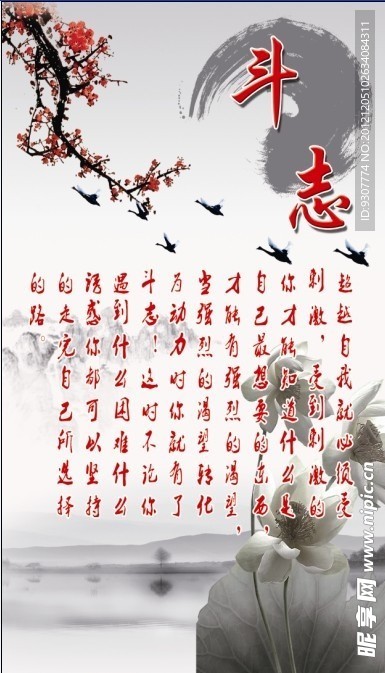 斗志
超越自我就必须受
刺激，受到刺激的
你才能知道什么是
自己最想要的东西，
才能有强烈的渴望，
当强烈的渴望转化
为动力时你就有了
斗志！这时不论你
遇到什么困难什么
诱惑你都可以坚持
的走完自己所选择
的路。
ID:9307774 NO:20121205102634084311
昵享网 www.nipic.cn